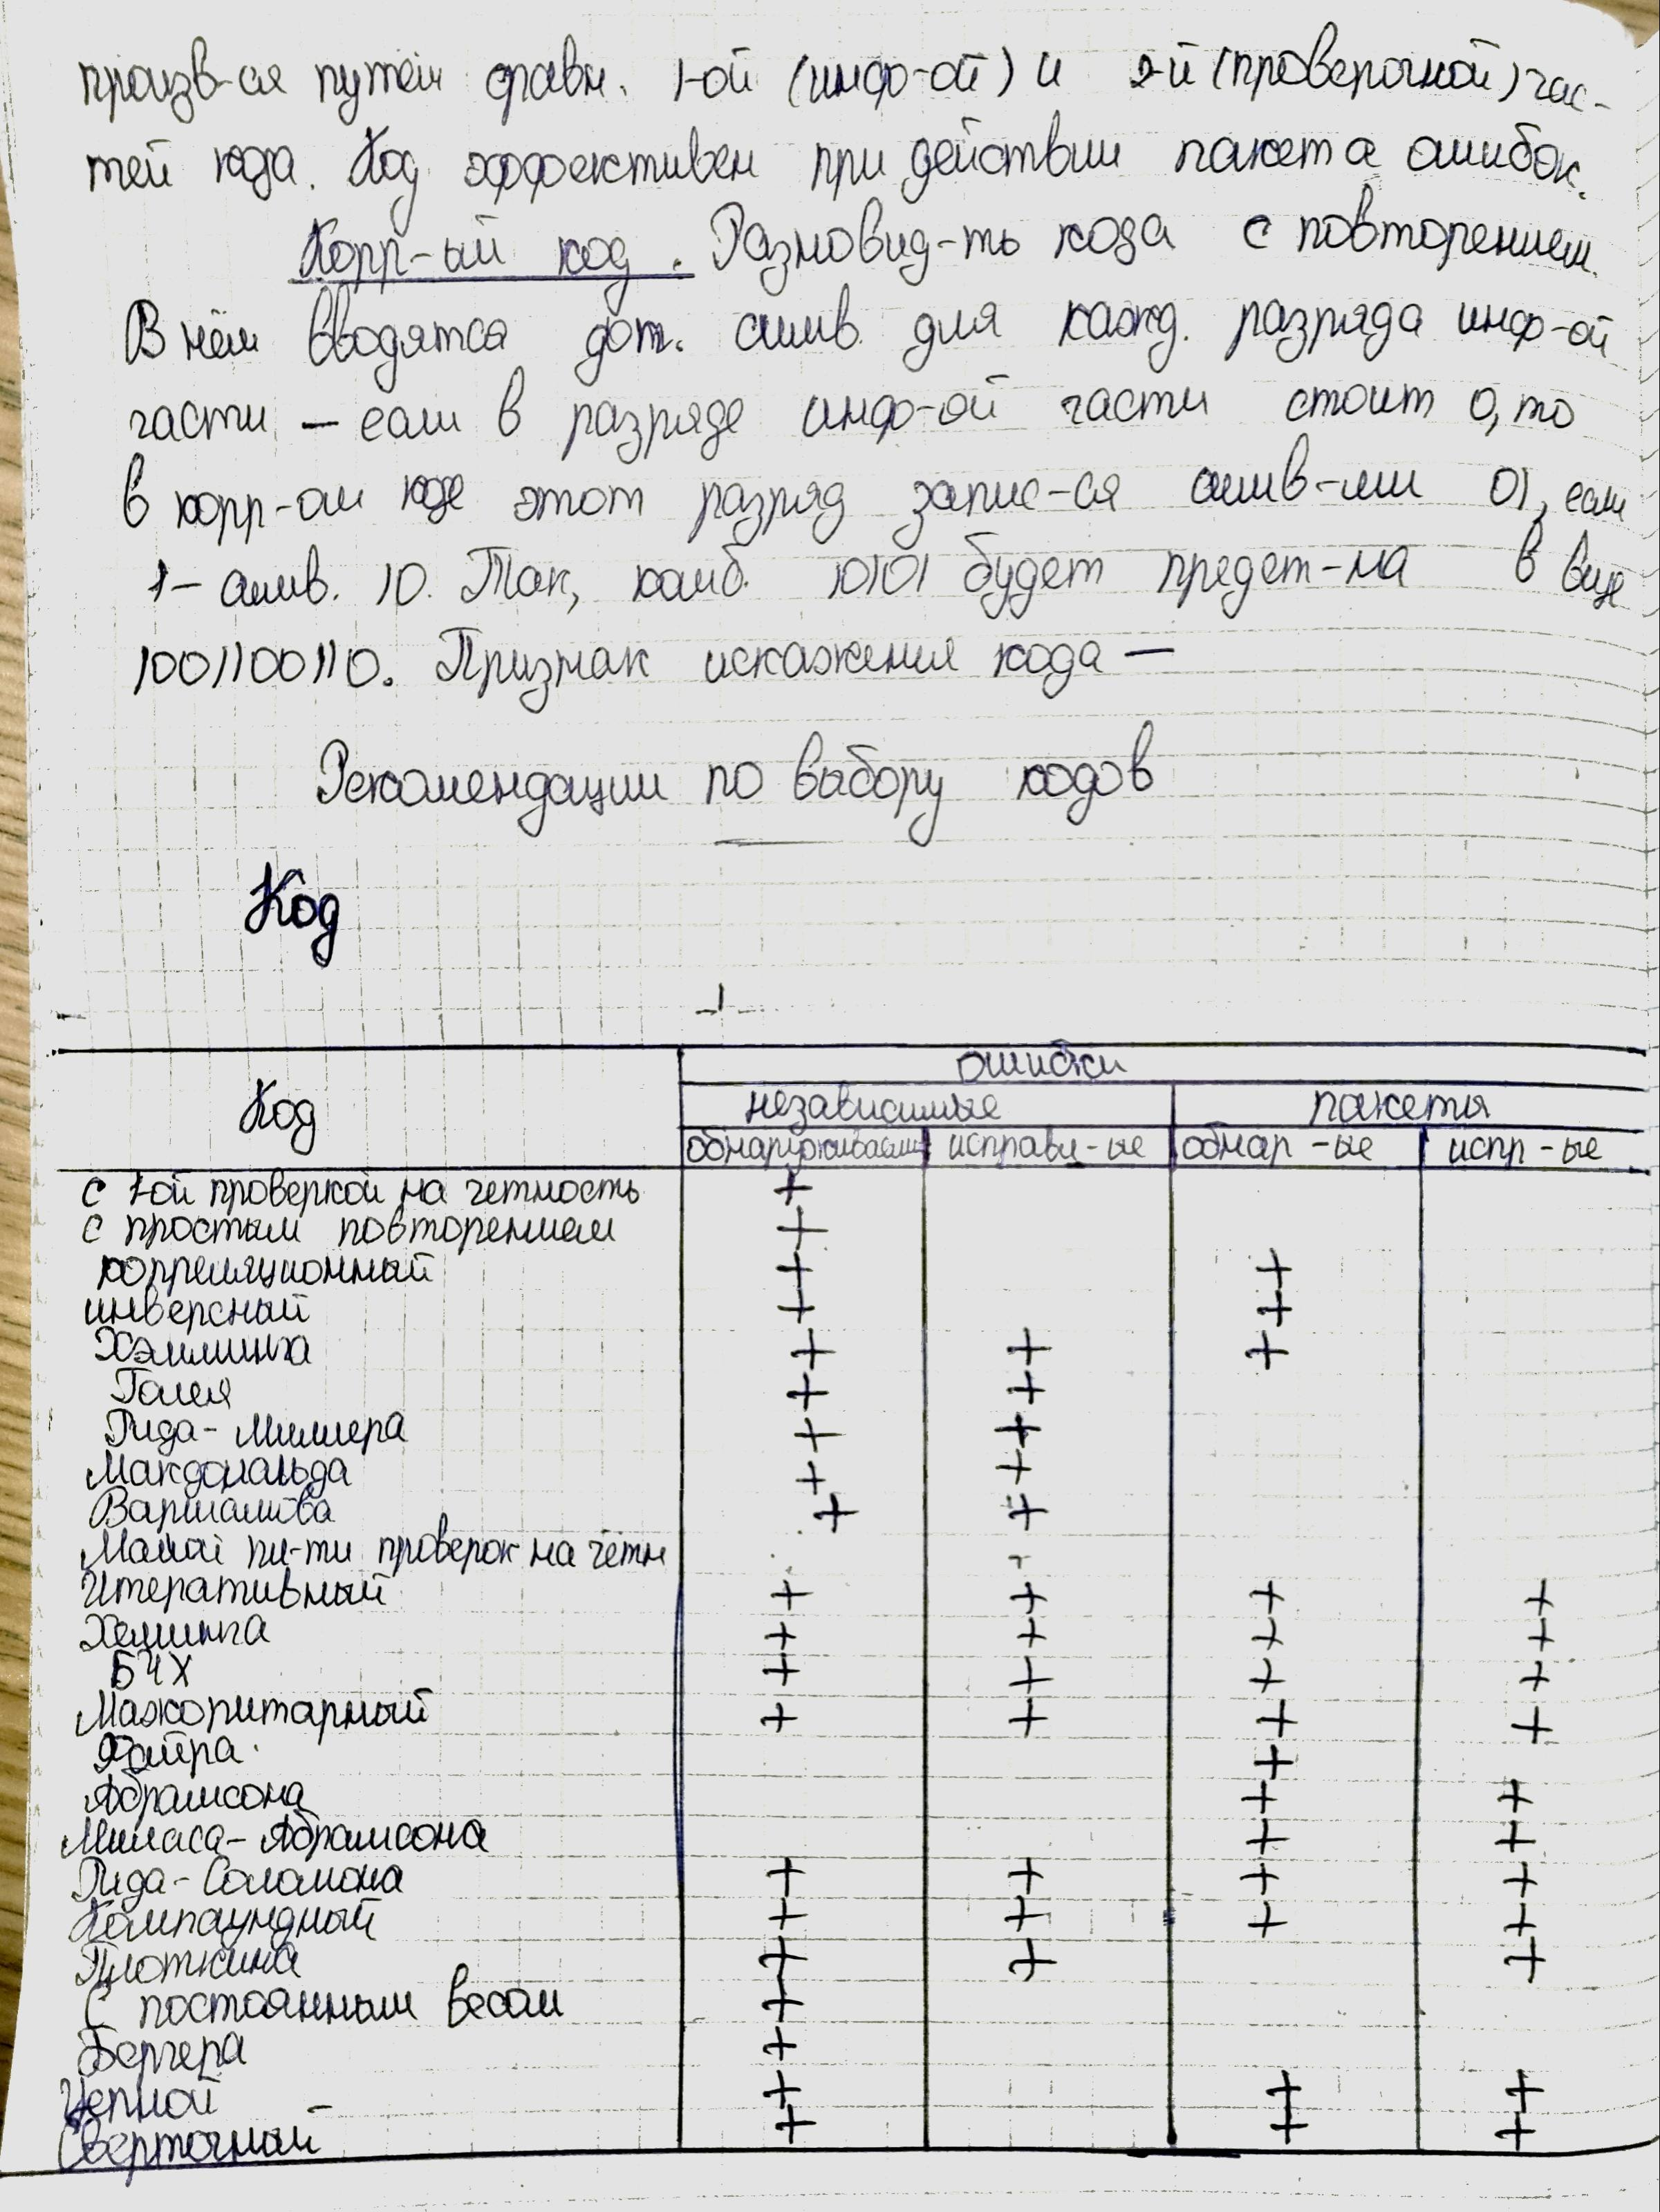 произв-ся путём сравн. 1-ой (инф-ой) и 2-й (проверочной) час-
тей кода. Код эффективен при действии пакета ошибок.
Корр-ый код. Разновид-ть кода с повторением.
В нём вводятся доп. симв. для кажд. разряда инф-ой
части – если в разряде инф-ой части стоит 0, то
в корр-ом коде этот разряд запис-ся симв-ми 01, если
1 – симв. 10. Так, комб. 10101 будет предст-на в виде
1001100110. Признак искажения кода –
Рекомендации по выбору кодов
Код
Код ошибки
независимые пакеты
обнаруживаемые исправл-ые обнар-ые испр-ые
с 1-ой проверкой на четность +
с простым повторением +
корреляционный + +
инверсный + +
Хэмминга + + +
Голея + +
Рида-Миллера + +
Макдональда + +
Варшамова + +
Малой пл-ти проверок на чётн
Итеративный + + + +
Хемминга + + + +
БЧХ + + + +
Мажоритарный + + + +
Файра +
Абрамсона + +
Миласа-Абрамсона + +
Рида-Соломона + + + +
Компаундный + + + +
Плоткина + + +
С постоянным весом +
Бергера +
Цепной + + +
Сверточный + + +